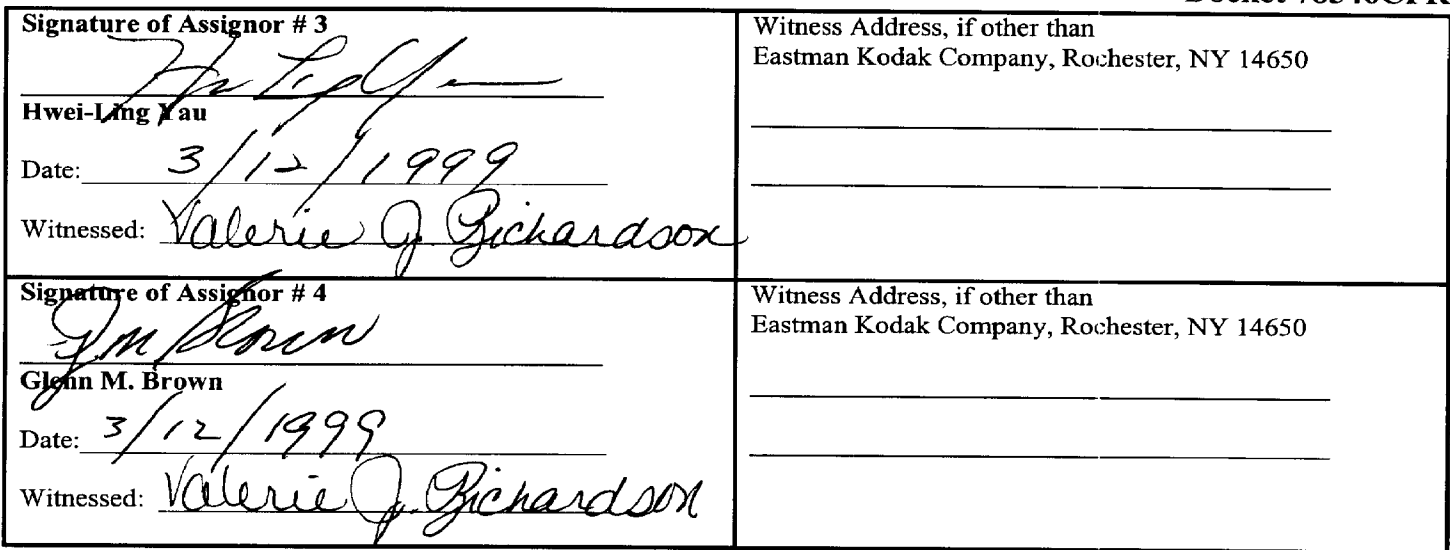 Signature of Assignor # 3
Hwei-Ling Yau
Date: 3/12/1999
Witnessed: Valerie J. Richardson
Witness Address, if other than
Eastman Kodak Company, Rochester, NY 14650
Signature of Assignor # 4
Glenn M. Brown
Date: 3/12/1999
Witnessed: Valerie J. Richardson
Witness Address, if other than
Eastman Kodak Company, Rochester, NY 14650